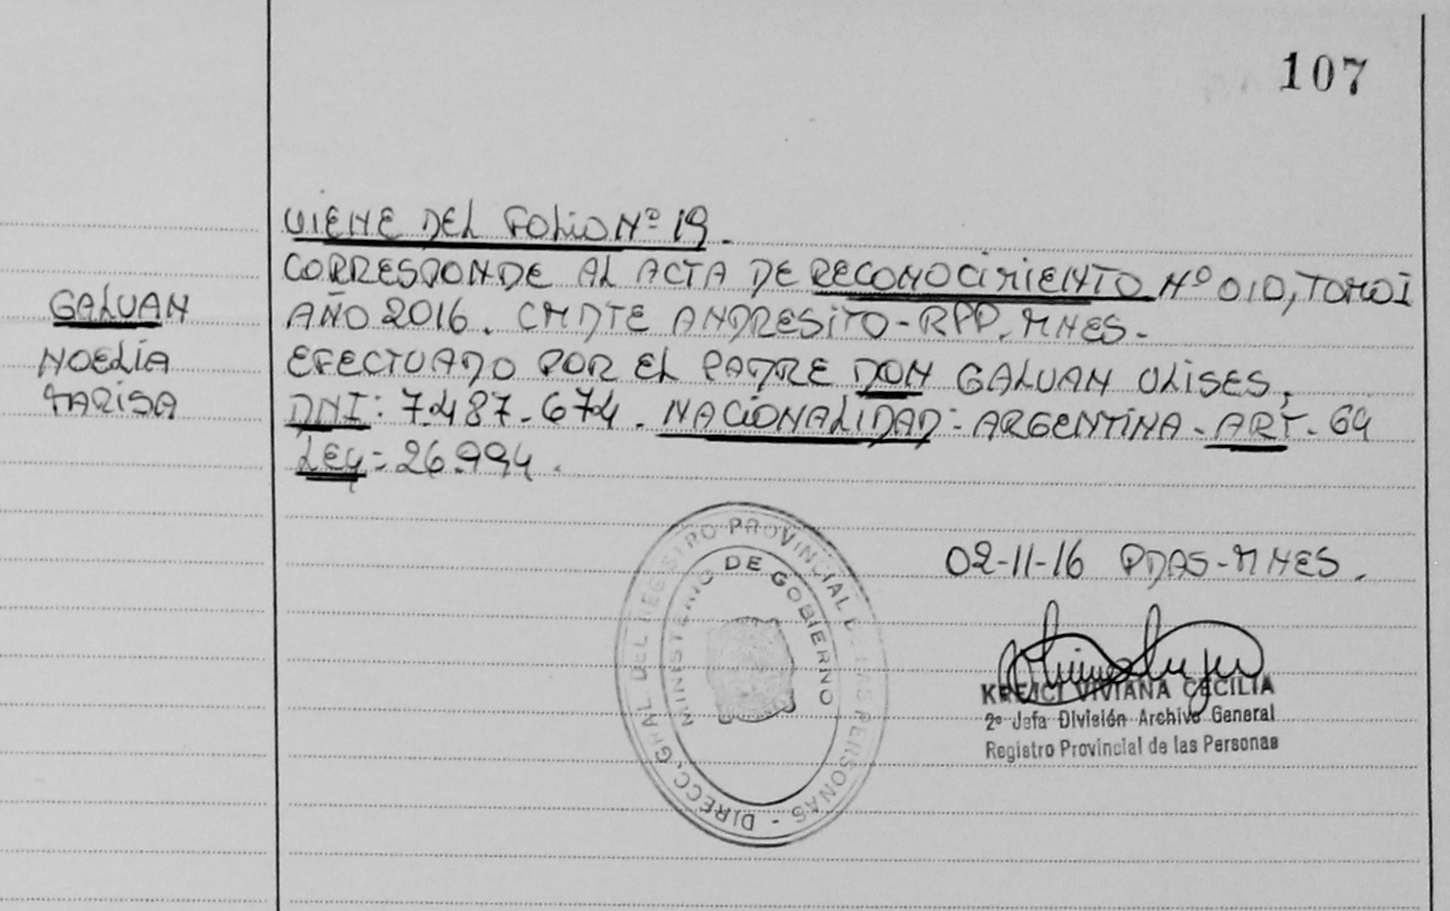 107
VIENE DEL FOLIO Nº 19.
CORRESPONDE AL ACTA DE RECONOCIMIENTO Nº 010, TOMO I
AÑO 2016. CMDTE ANDRESITO-RPP. MNES-
EFECTUADO POR EL PADRE DON GALVAN ULISES,
DNI: 7.487.674. NACIONALIDAD: ARGENTINA-ART-64
LEY-26.994.
GALVAN
NOELÍA
MARISA
02-11-16 PDAS-MNES.
DIRECC. GRAL DEL REGISTRO PROVINCIAL DE LAS PERSONAS -
MINISTERIO DE GOBIERNO
KREJCI VIVIANA CECILIA
2º Jefa División Archivo General
Registro Provincial de las Personas